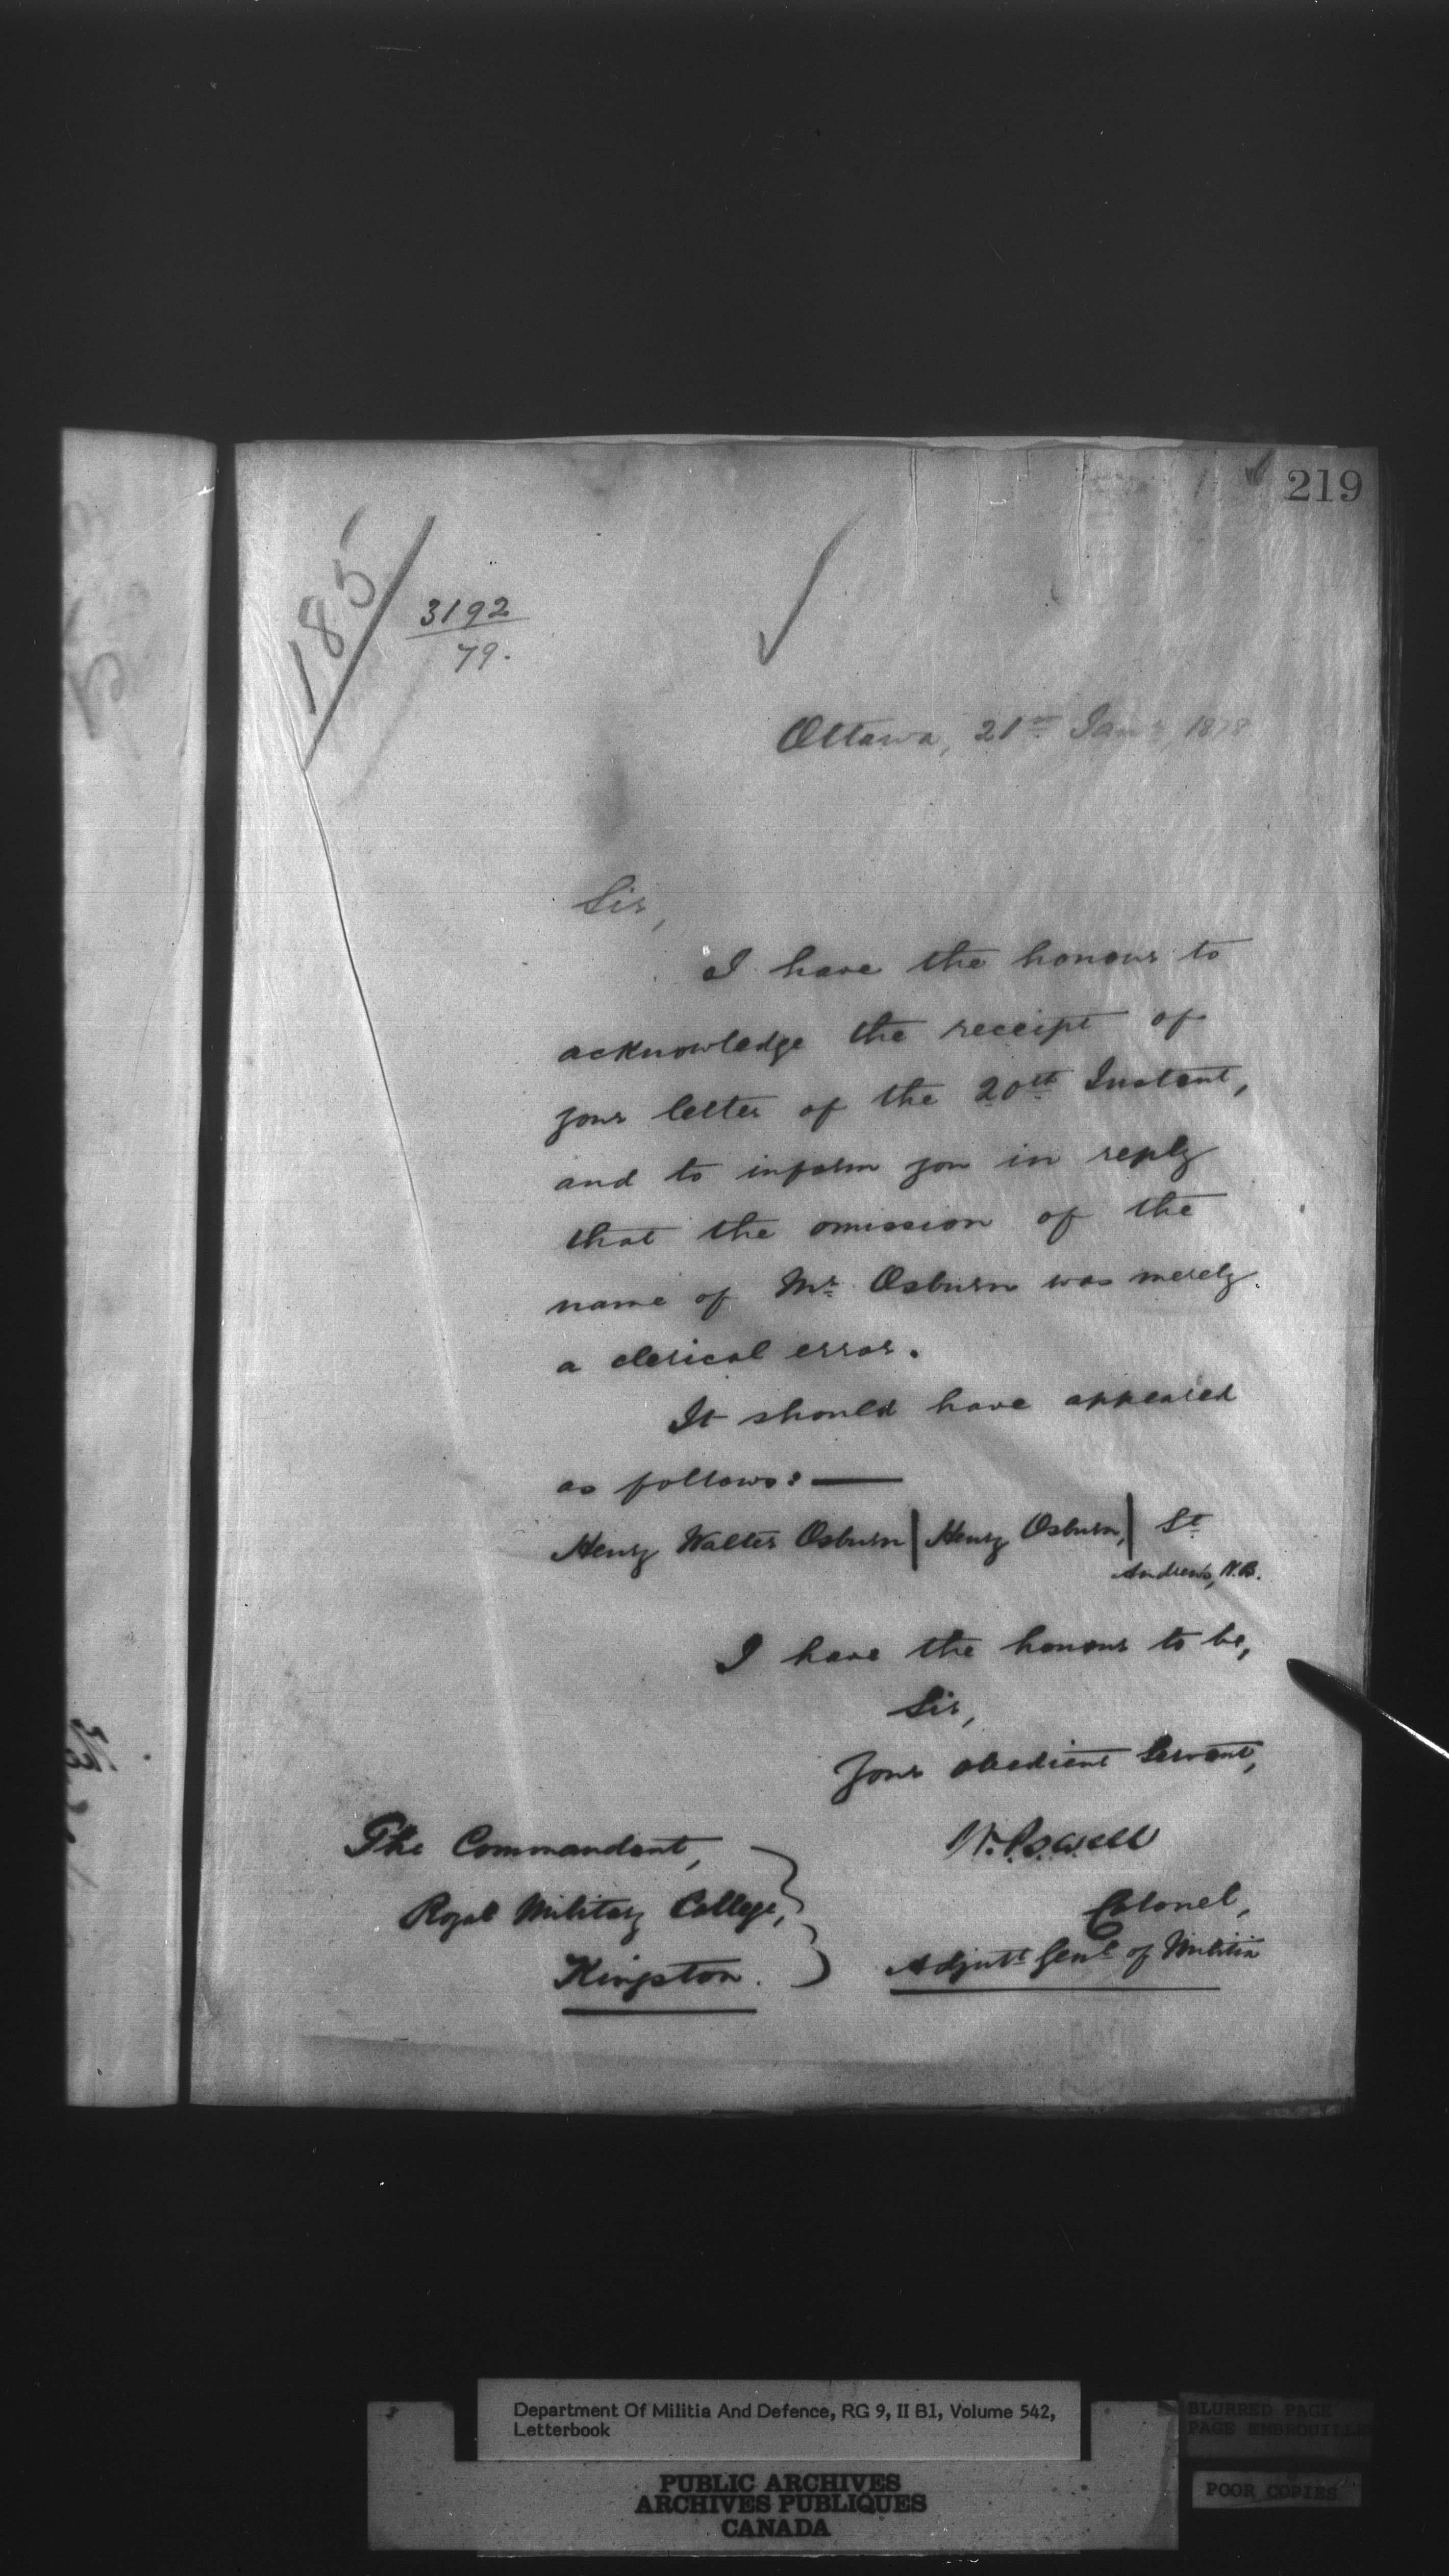 219
185
3192
79.
Ottawa, 21st Jany, 1878
Sir,
I have the honour to
acknowledge the receipt of
your letter of the 20th Instant,
and to inform you in reply
that the omission of the
name of Mr. Osburn was merely
a clerical error.
It should have appeared
as follows:—
Henry Walter Osburn | Henry Osburn, | St.
Andrew's, N.B.
I have the honour to be,
Sir,
Your obedient Servant,
W. Powell
Colonel,
Adjutt. Genl. of Militia
The Commandant,
Royal Military College,
Kingston.
Department Of Militia And Defence, RG 9, II B1, Volume 542,
Letterbook
PUBLIC ARCHIVES
ARCHIVES PUBLIQUES
CANADA
BLURRED PAGE
PAGE EMBROUILLE
POOR COPIES